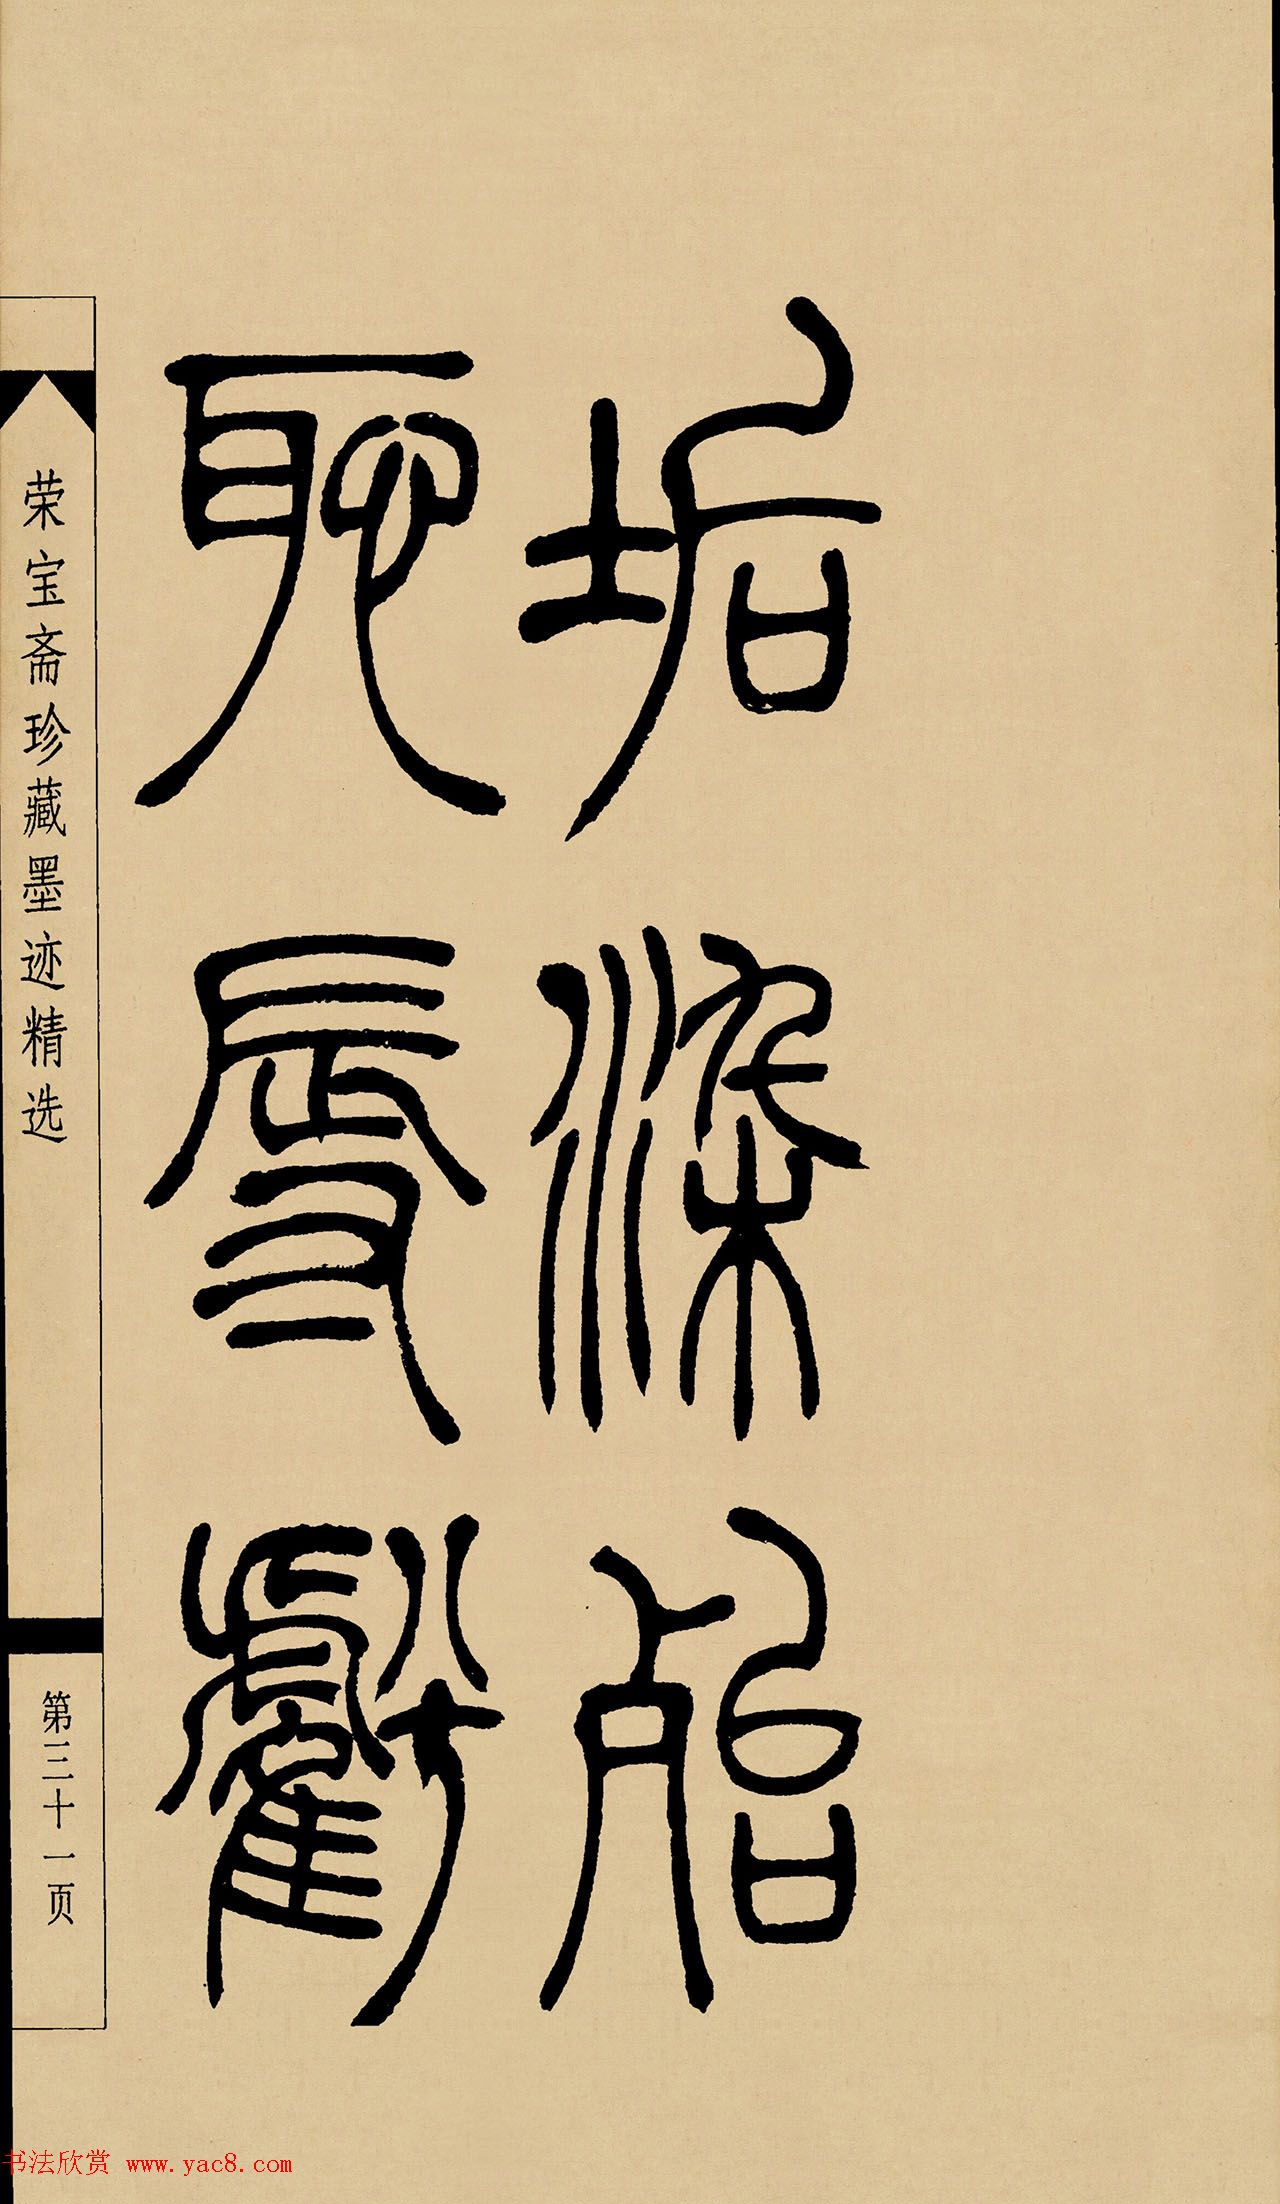 垢染殆
恥辱虧
荣宝斋珍藏墨迹精选
第三十一页
书法欣赏 www.yac8.com